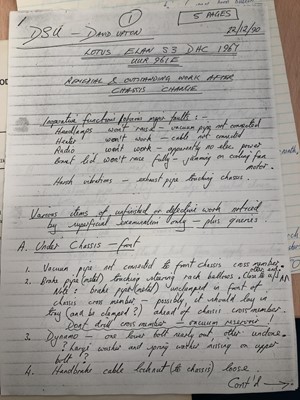 1
5 PAGES
DSU - DAVID UPTON
12/12/90
LOTUS ELAN S3 DHC 1967
UUR 961E
REMEDIAL & OUTSTANDING WORK AFTER
CHASSIS CHANGE
Inoperative functions major faults :-
Headlamps won't raise - vacuum pipe not connected
Heater won't work - cable not connected
Radio won't work - apparently no elec. power
Bonnet lid won't raise fully - jamming on cooling fan
motor.
Harsh vibrations - exhaust pipe touching chassis.
Various items of unfinished or defective work noticed
by superficial examination only - plus queries
A. Under Chassis - front
1. Vacuum pipe not connected to front chassis cross member
2. Brake pipe (metal) touching steering rack bellows.
Note : brake pipe (metal) unclamped in front of
chassis cross member - possibly it should lay in
(and be clamped?) ahead of chassis cross member.
Dont drill cross member - vacuum reservoir
3. Dynamo - one lower bolt nearly out, other undone.
? large washer and spring washer missing on upper
bolt ?
4. Handbrake cable locknut (to chassis) loose
Cont'd